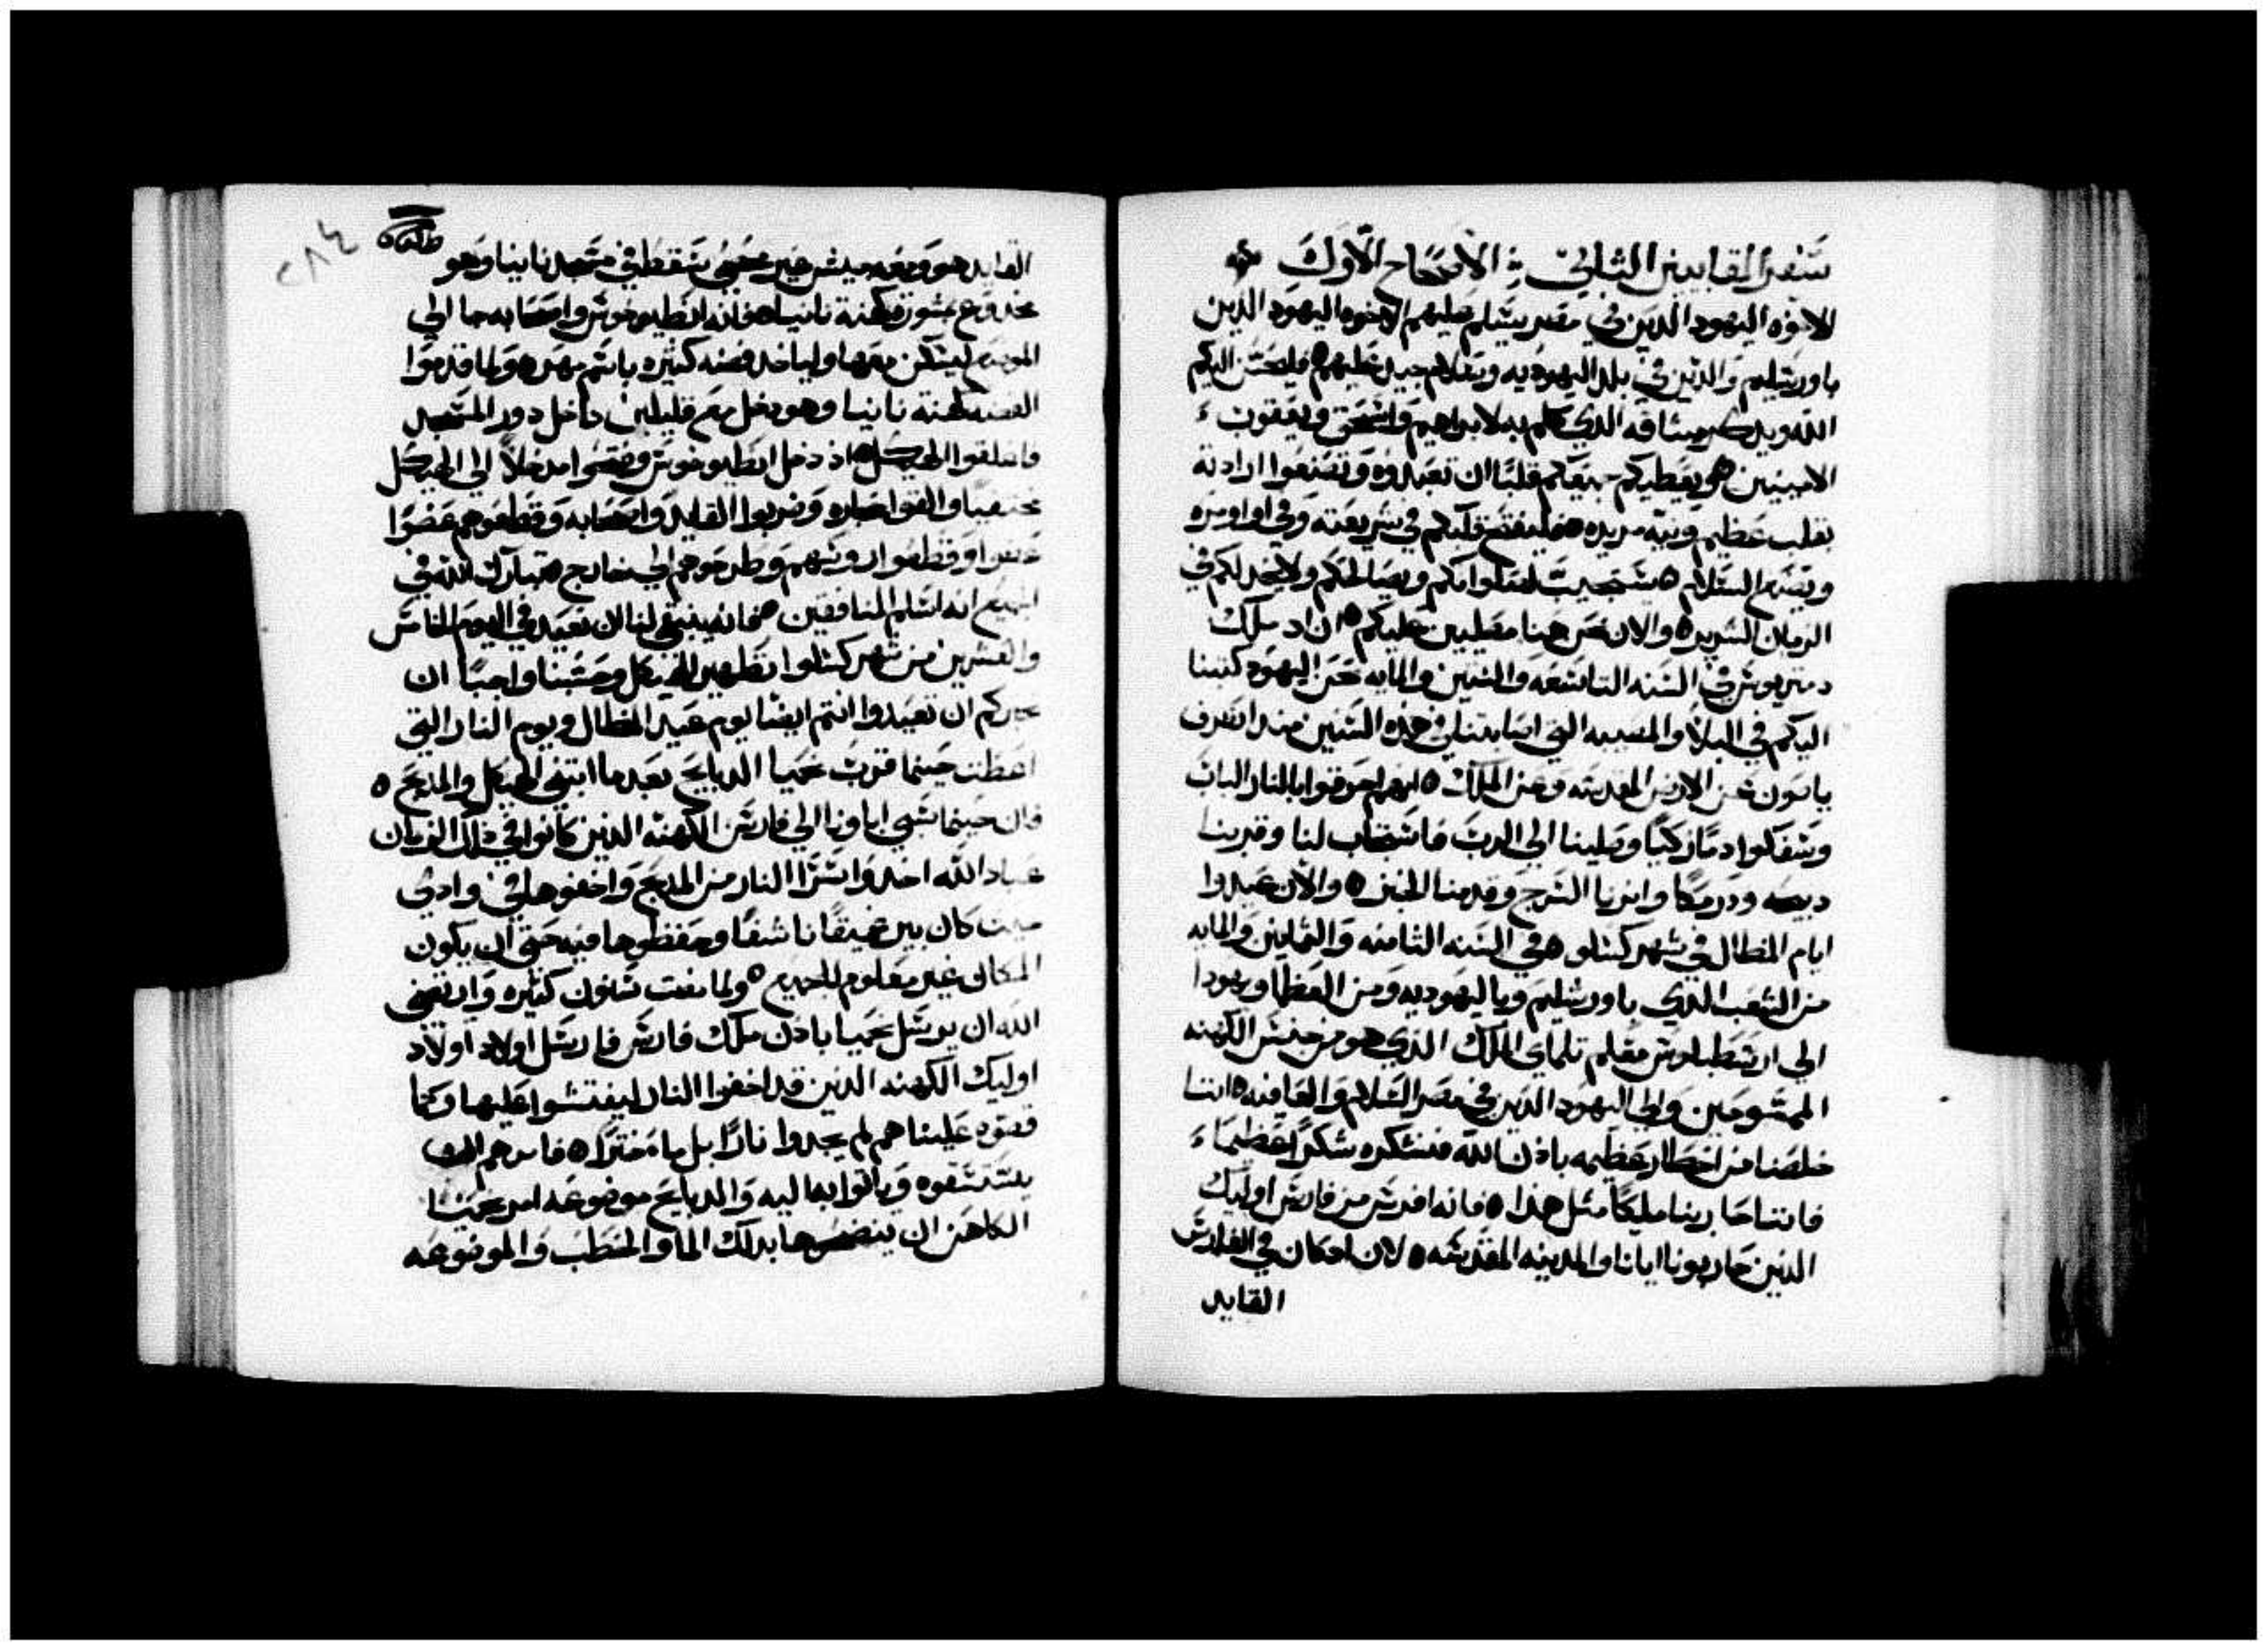 سفر المقابيين الثاني الاصحاح الاول
للاخوه اليهود الدين في مصر يسلم عليهم الاخوه اليهود الدين
باورشليم والدين في بلد اليهوديه وسلام جيد عليهم ٥ فليحسن اليكم
الله ويدكر ميثاقه الدي كلم به لابراهيم واسحق ويعقوب
الامينين ٥ ويعطيكم جميعكم قلبًا ان تعبدوه وتصنعوا ارادته
بقلب عظيم ونيه مريده ٥ فليفتح قلبكم في شريعته وفي اوامره
ويصنع السلام ٥ يستجيب لصلواتكم ويصالحكم ولا يخدلكم في
الزمان الشرير ٥ والان نحن ههنا مصليين عليكم ٥ ان اد ملك
دمتريوس في السنه التاسعه والستين والمايه نحن اليهود كتبنا
اليكم في البلا والمصيبه التي اصابتنا في هده السنين مند انصرف
ياسون عن الارض المقدسه وعن الملك ٥ انهم احرقوا بالنار الباب
وسفكوا دمًا زكيًا وصلينا الي الرب فاستجاب لنا وقدمنا
دبيحه ودرمكًا وانرنا السرج وقدمنا الخبز ٥ والان عيدوا
ايام المظال في شهر كسلو ٥ في السنه الثامنه والثمانين والمايه
من الشعب الدي باورشليم وباليهوديه ومن العظما ويهودا
الي ارسطبلوس معلم تلماي الملك الدي هو من جنس الكهنه
الممسوحين والي اليهود الدين في مصر السلام والعافيه ٥ اننا
خلصنا من اخطار عظيمه بادن الله فنشكره شكرًا عظيمًا
فاننا حاربنا مليكًا مثل هدا ٥ فانه افرش من فارس اوليك
الدين حاربونا ايانا والمدينه المقدسه ٥ لان اد كان في الفارس
القايد
٢٨٤
القايد هو ومعه جيش غير محصي سقط في مسجد نانيا وهو
مخدوع بمشورة كهنة نانيا ٥ فانه انطيوخوس واصحابه جا الي
الموضع ليسكن معها ولياخد فضه كثيره باسم مهر ٥ ولما قدموا
الفضه كهنة نانيا وهو دخل مع قليلين داخل دور المسجد
فاغلقوا الهيكل ٥ اد دخل انطيوخوس وفتحوا مدخلاً الي الهيكل
مخفيًا والقوا حجاره وضربوا القايد واصحابه وقطعوهم عضوًا
عضوًا وقطعوا روسهم وطرحوهم الي خارج ٥ تبارك الله في
الجميع انه اسلم المنافقين ٥ فانه ينبغي لنا ان نعيد في اليوم الخامس
والعشرين من شهر كسلو تطهير الهيكل وحسبنا واجبًا ان
نخبركم ان تعيدوا انتم ايضا يوم عيد المظال ويوم النار التي
اعطت حينما قرب نحميا الدبايح بعد ما ابتني الهيكل والمدبح ٥
فان حينما سبي اباونا الي فارس الكهنه الدين كانوا في دلك الزمان
عباد الله اخدوا سرًا النار من المدبح واخفوها في وادي
حيث كان بير عميقًا ناشفًا وحفظوها فيه حتي ان يكون
المكان غير معلوم للجميع ٥ ولما مضت سنون كثيره وارتضي
الله ان يرسل نحميا بادن ملك فارس فارسل اولاد اولاد
اوليك الكهنه الدين قد اخفوا النار ليفتشوا عليها وكما
قصوه علينا هم لم يجدوا نارًا بل ما خترًا ٥ فامرهم ان
يستقوه وياتوا بها اليه والدبايح موضوعه امر نحميا
الكاهن ان ينضحوها بدلك الما والحطب والموضوعه